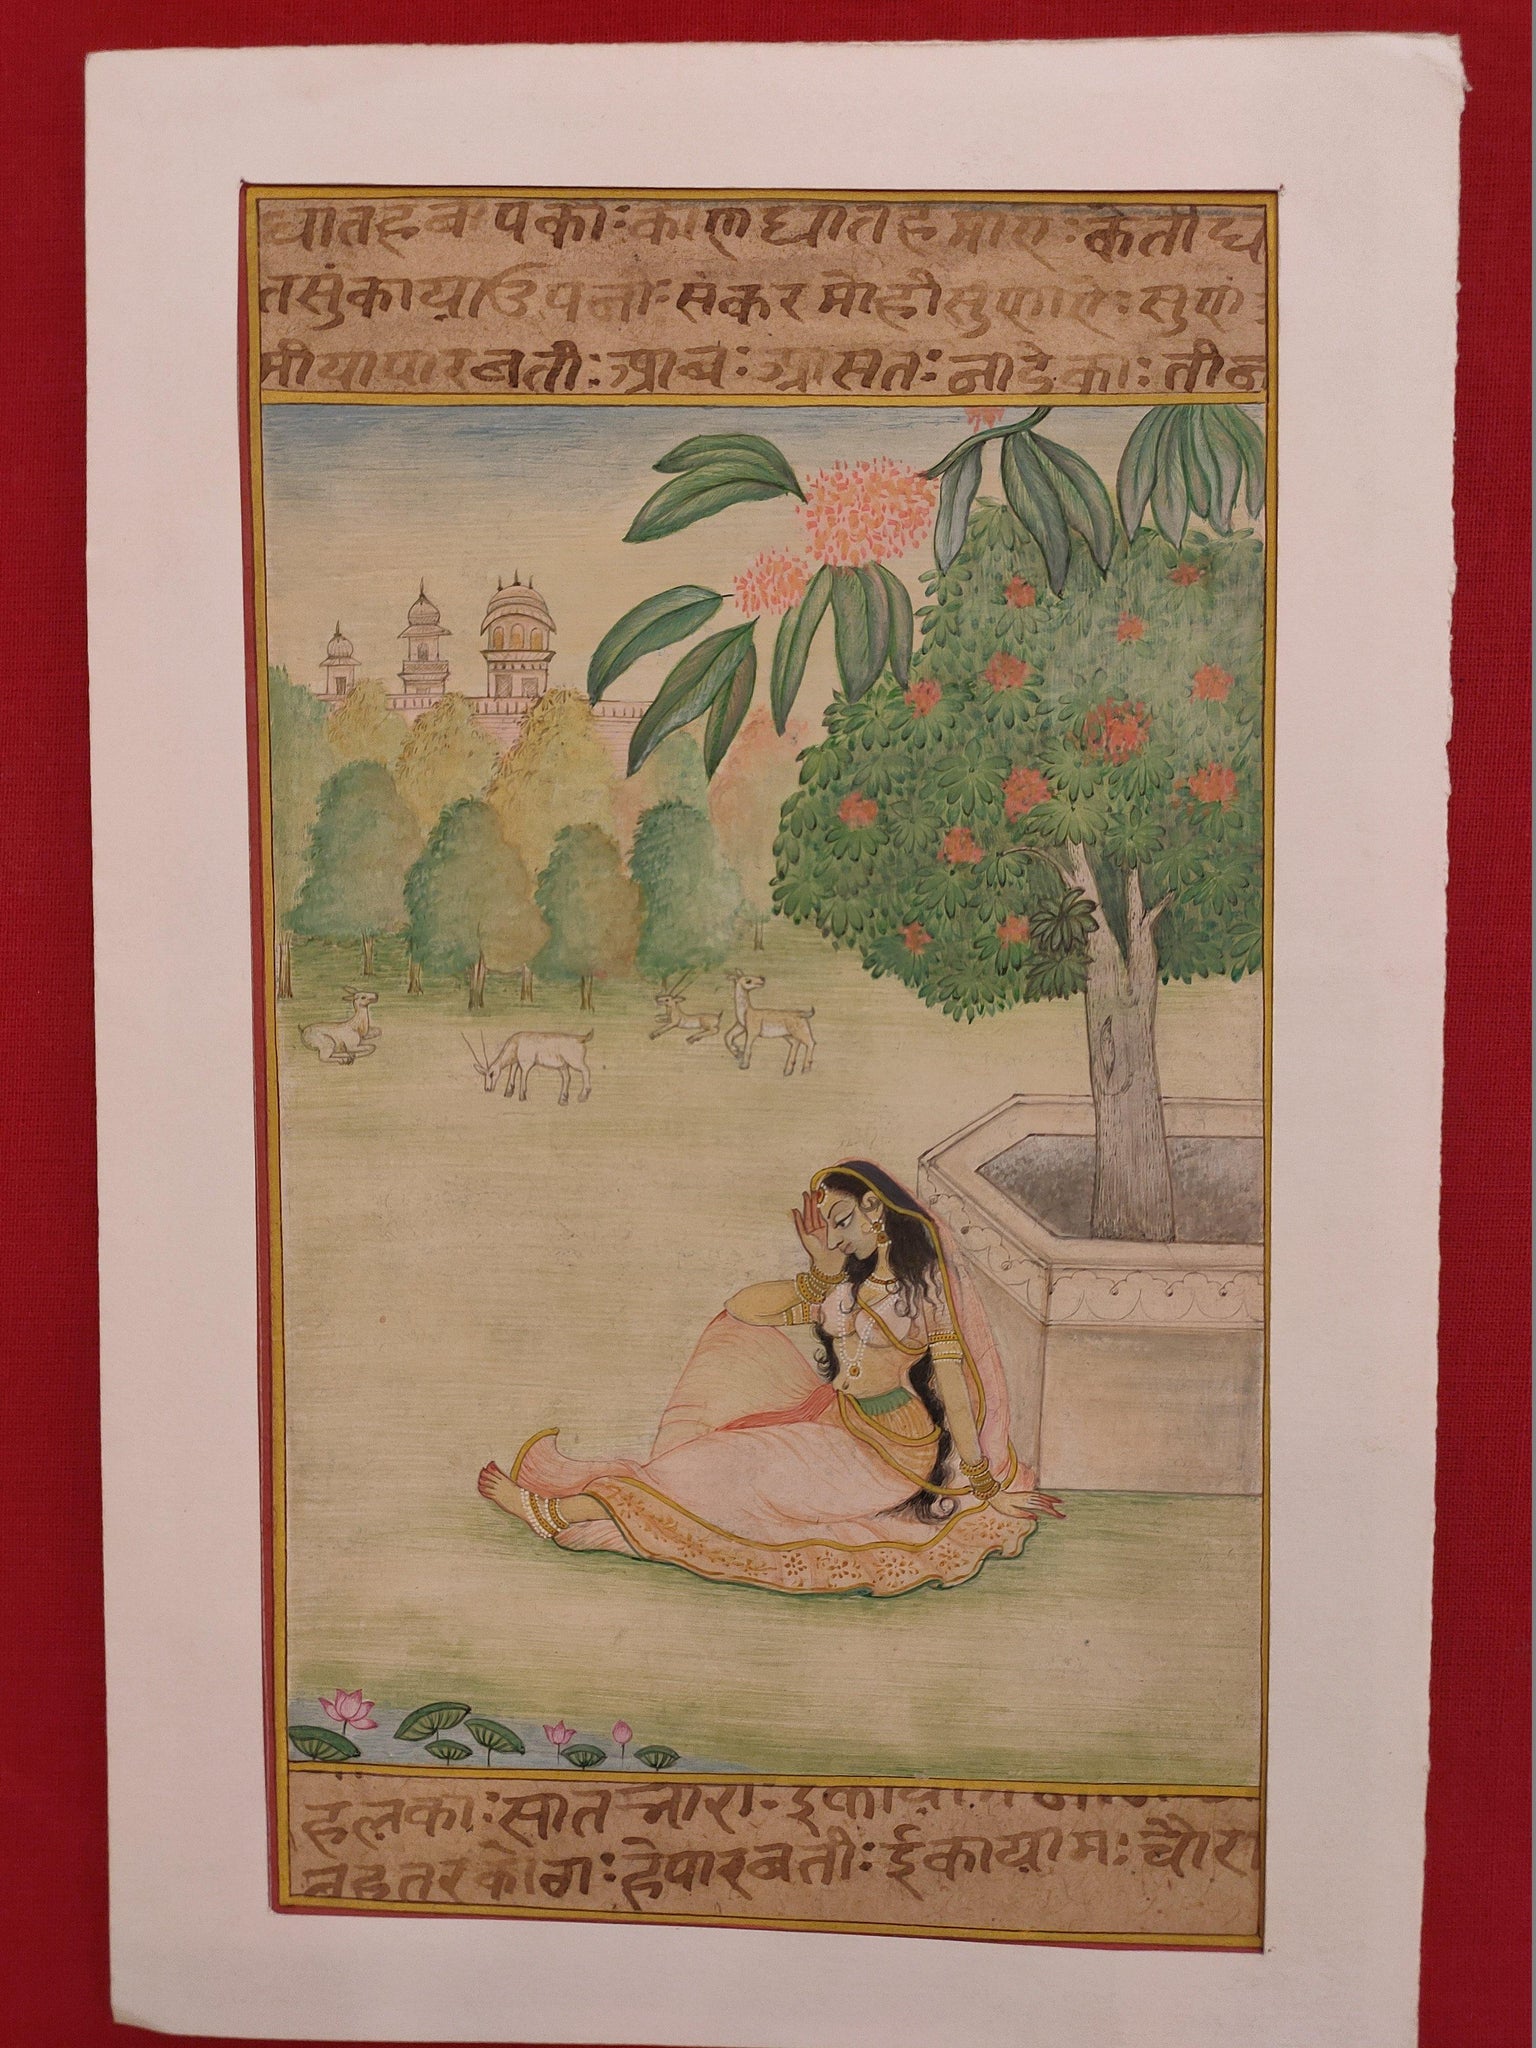 घातहव पकाः काण घातह माणः केती घ
तसुंकायाउपनीः संकर मोही सुणाऐः सुणं
मीयापारबतीः आबः आसतः नाडेकाः तीन
हलकाः सात नारीः
बहतरकोठाः हेपारबतीः ईकायामः चौरा